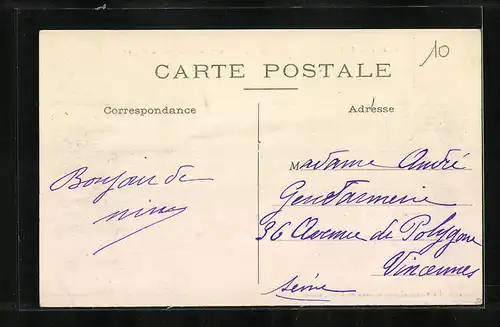 10
CARTE POSTALE
Correspondance
Adresse
Bonjour de
Madame André
Gendarmerie
36 Avenue de Polygone
Vincennes
Seine